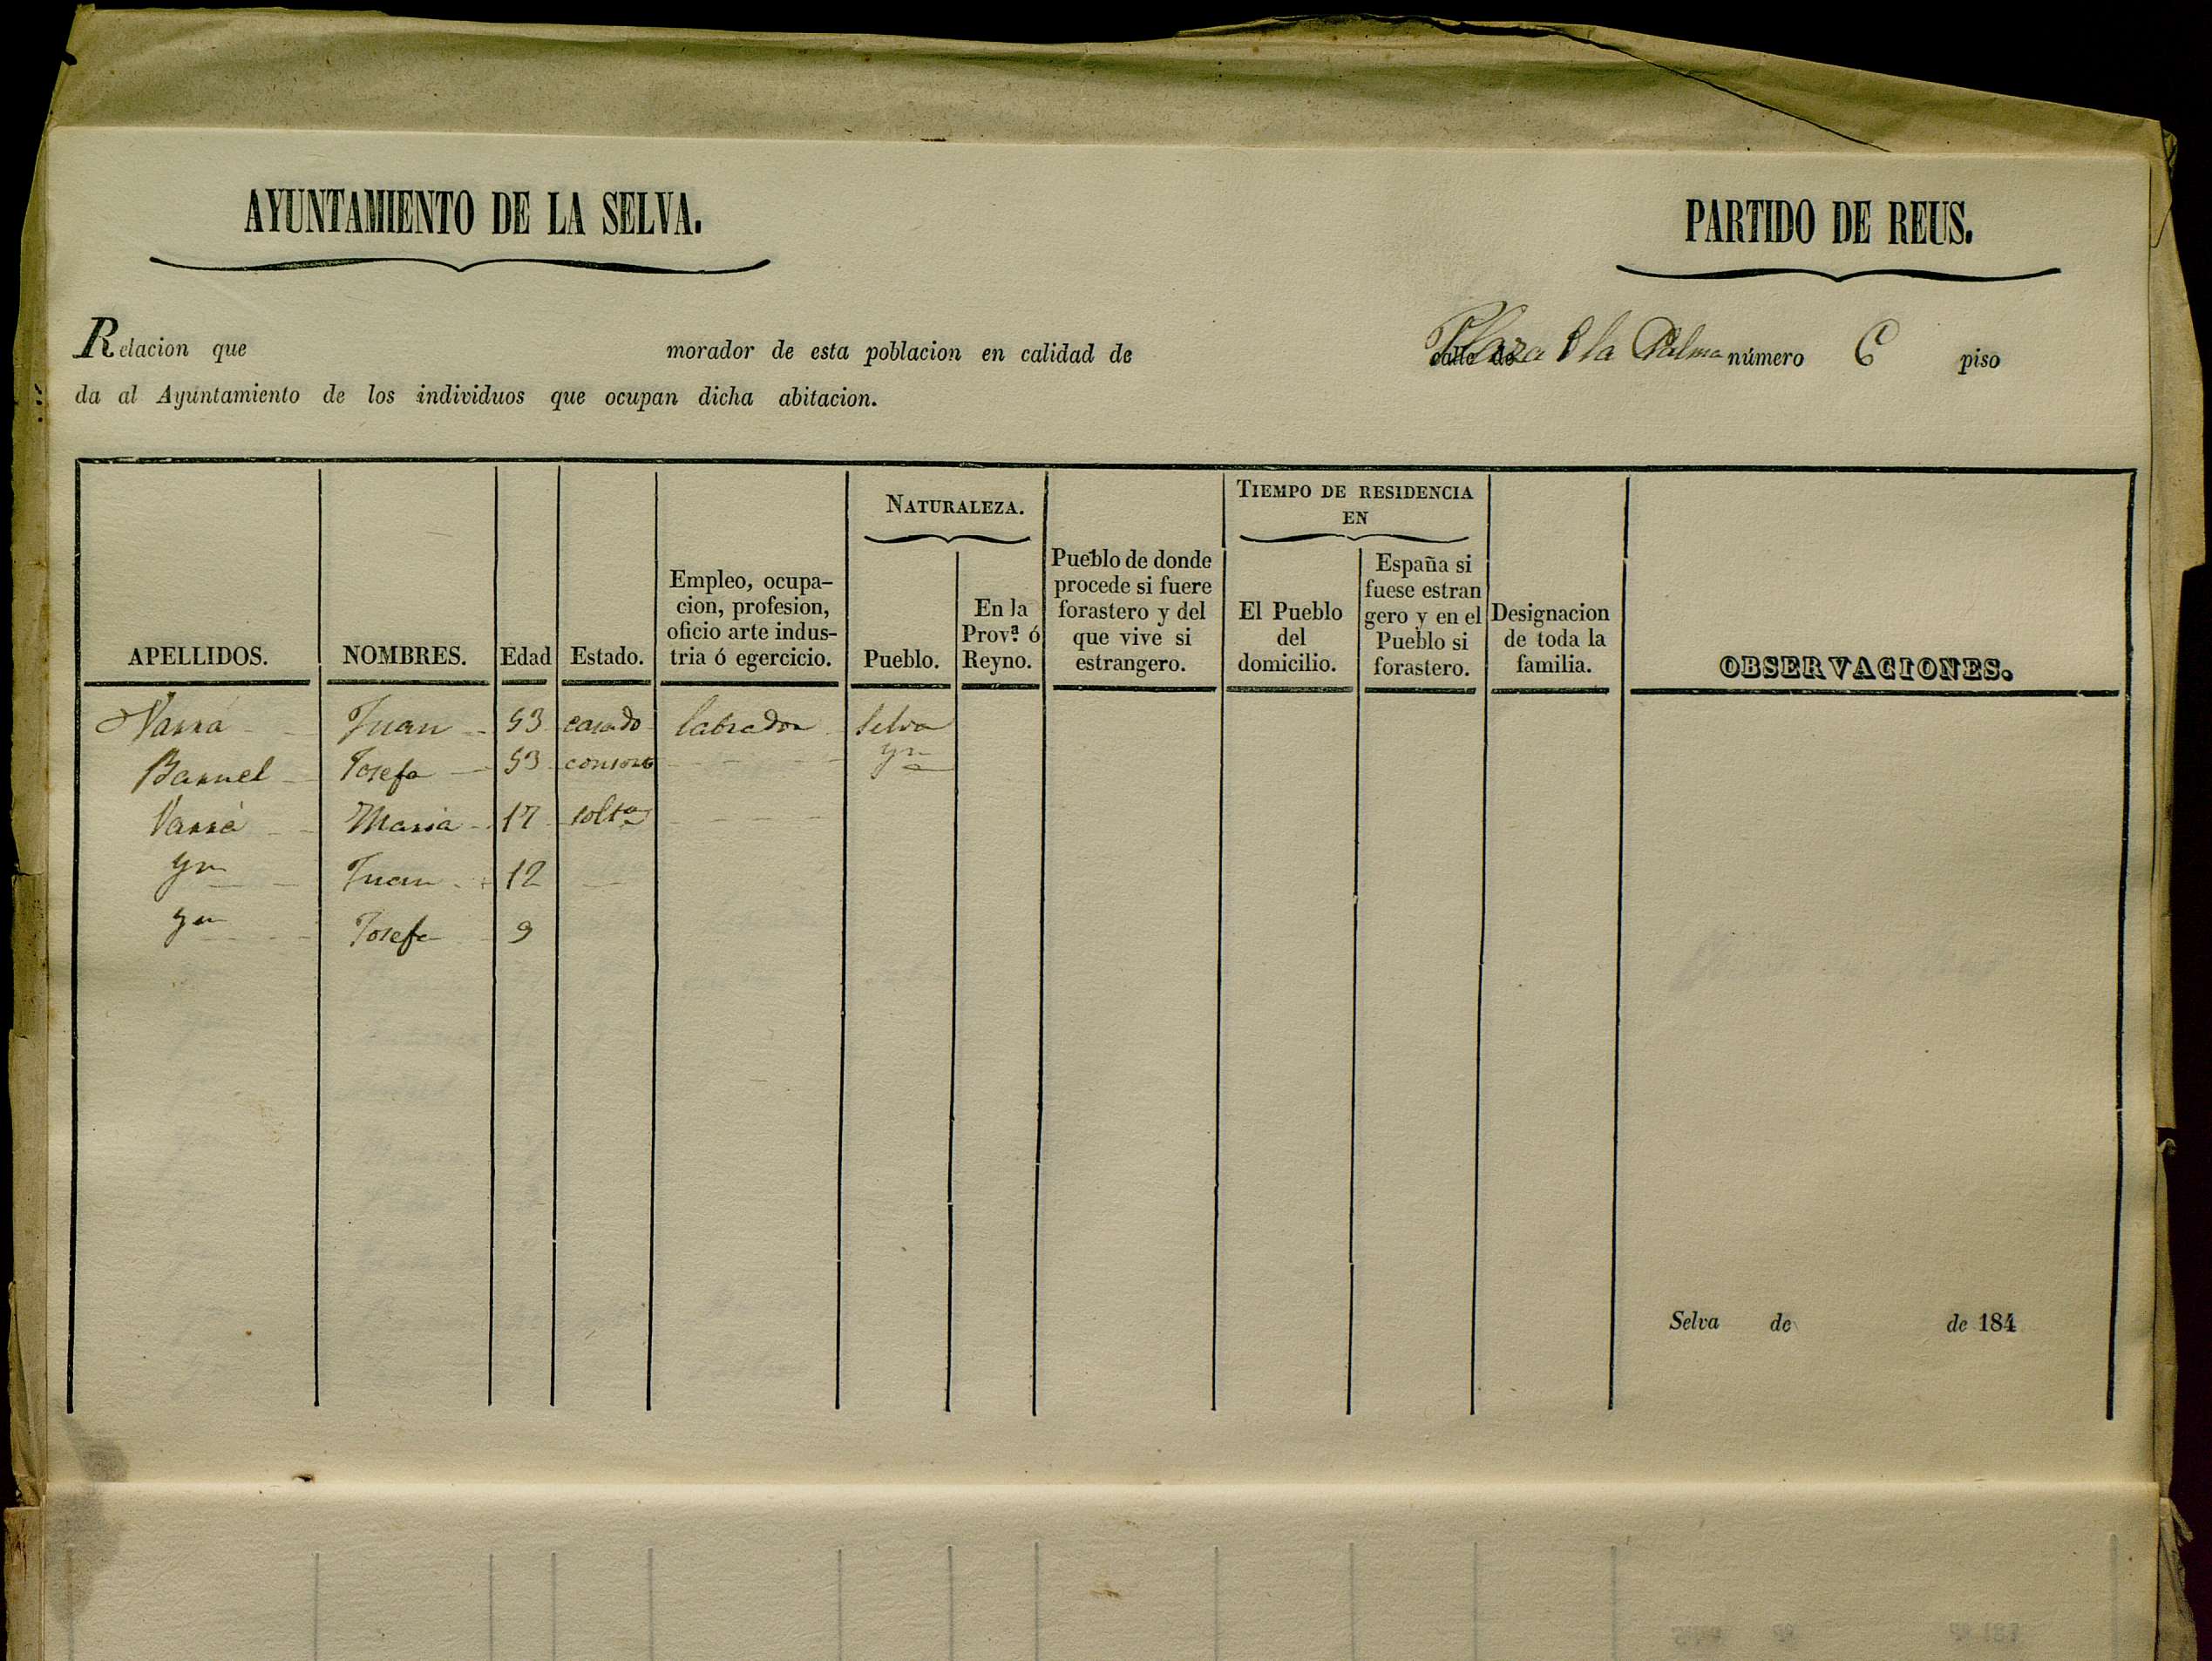 AYUNTAMIENTO DE LA SELVA.
PARTIDO DE REUS.
Relacion que morador de esta poblacion en calidad de calle de Plaza d la Palma número 6 piso
da al Ayuntamiento de los individuos que ocupan dicha abitacion.
NATURALEZA.
TIEMPO DE RESIDENCIA
EN
APELLIDOS.
NOMBRES.
Edad
Estado.
Empleo, ocupa-
cion, profesion,
oficio arte indus-
tria ó egercicio.
Pueblo.
En la
Provª. ó
Reyno.
Pueblo de donde
procede si fuere
forastero y del
que vive si
estrangero.
El Pueblo
del
domicilio.
España si
fuese estran
gero y en el
Pueblo si
forastero.
Designacion
de toda la
familia.
OBSERVACIONES.
Juan 53 casado labrador Selva
Josefa 53 consorte yn
Maria 17 soltª
yn Juan 12
yn Josefa 9
Selva de de 184